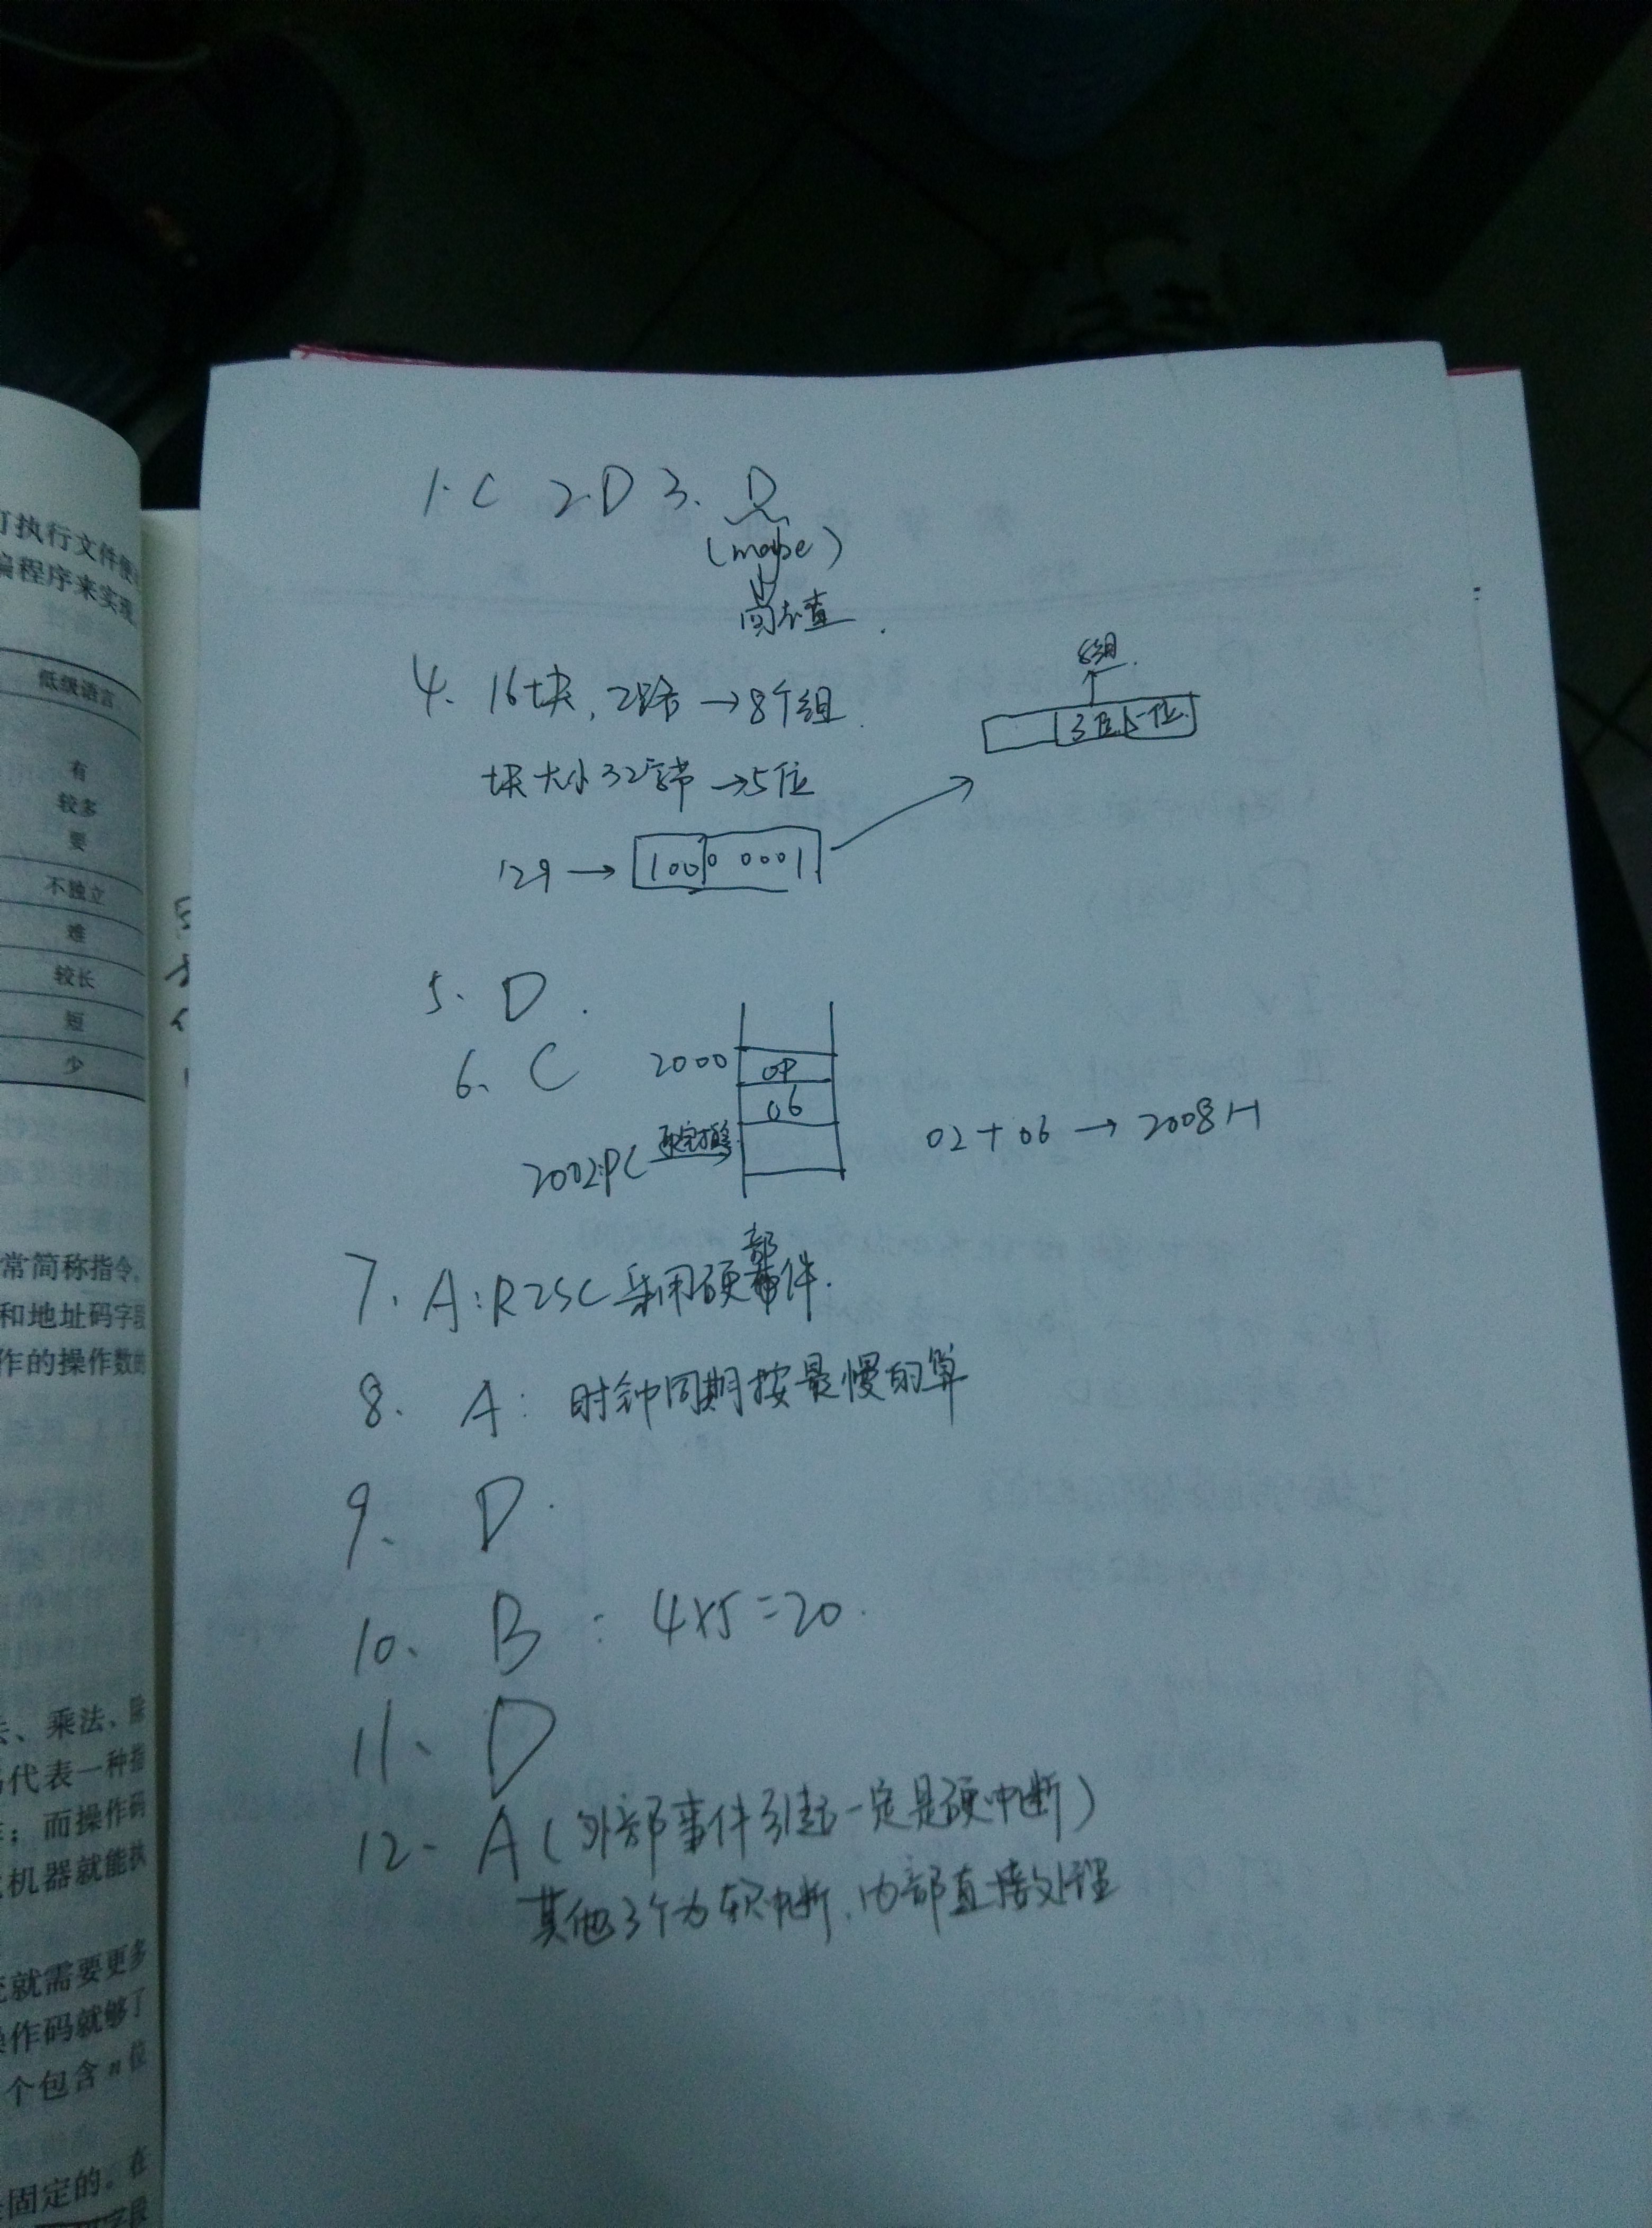 打执行文件便
编程序来实现
低级语言
有
较多
要
不独立
难
较长
短
少
常简称指令,
和地址码字段
作的操作数的
、乘法、除
代表一种指
; 而操作码
机器就能执
就需要更多
操作码就够了
个包含n位
固定的。在
1. C 2. D 3. D
(maybe)
尚未查.
4. 16块, 2路 → 8个组
块大小32字节 → 5位
129 → 100 0 0001
8组.
3位 5位
5. D.
6. C
2000 OP
06
2002:PC
02 + 06 → 2008H
7. A: RISC 采用硬部件.
8. A: 时钟周期按最慢的算
9. D.
10. B: 4×5=20.
11. D
12. A (外部事件引起一定是硬中断)
其他3个为软中断, 内部直接处理